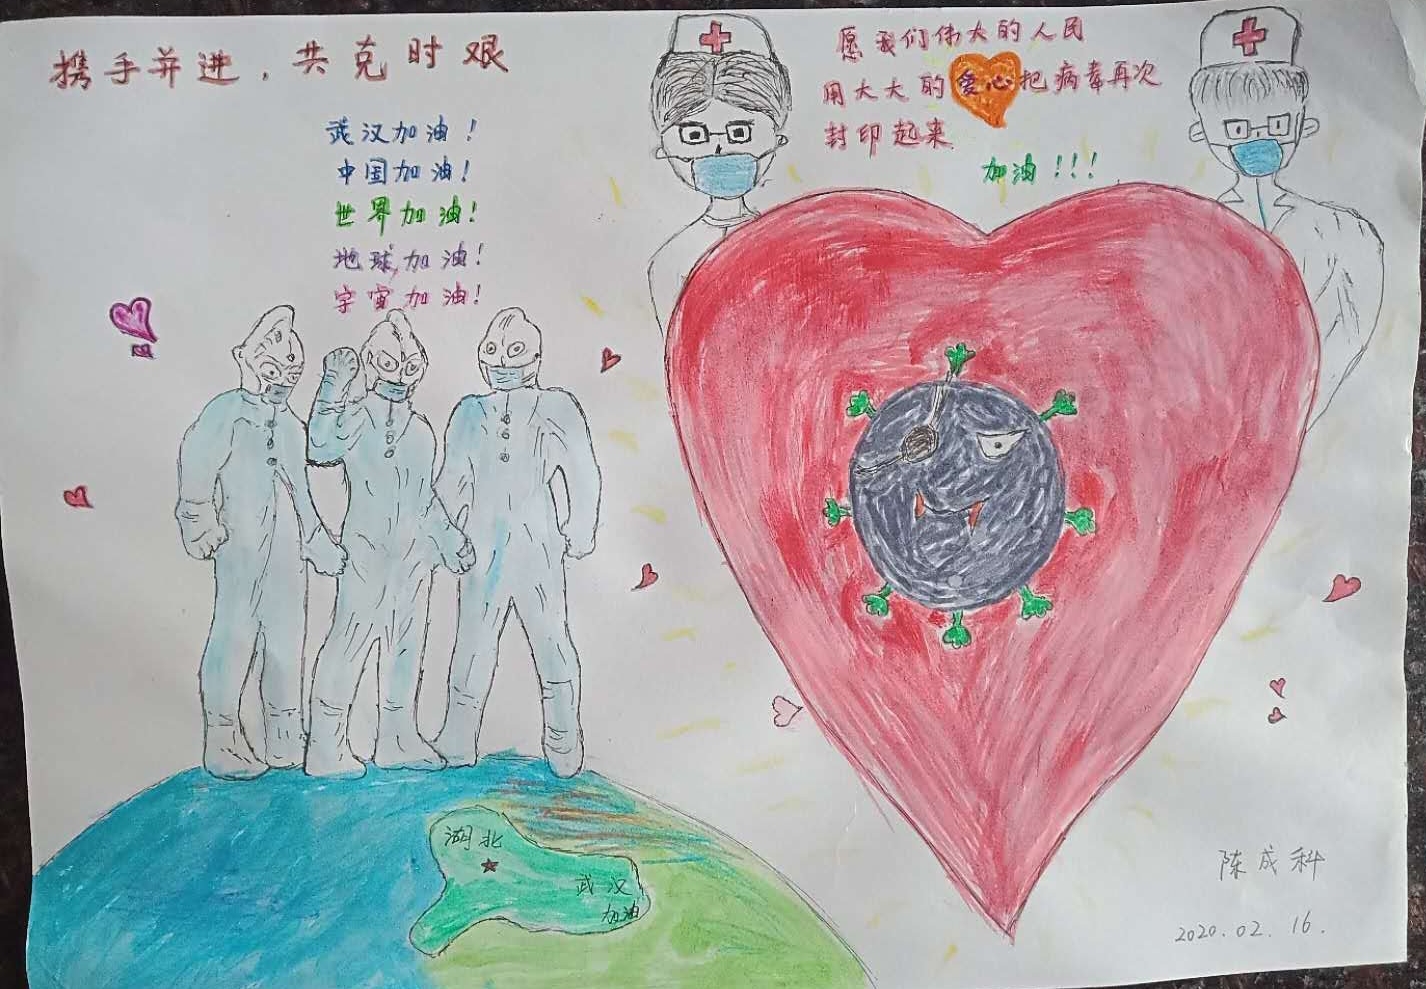 携手并进，共克时艰
武汉加油！
中国加油！
世界加油！
地球加油！
宇宙加油！
愿我们伟大的人民
用大大的爱心把病毒再次
封印起来
加油!!!
湖北
武汉
加油
陈成科
2020.02.16.